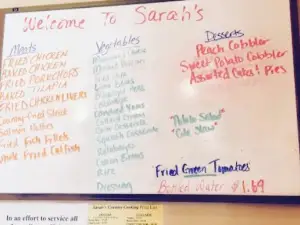 Welcome To Sarah's
Meats
FRIED CHICKEN
BAKED CHICKEN
FRIED PORKCHOPS
BAKED TILAPIA
FRIED CHICKEN LIVERS
Country Fried Steak
Salmon Patties
Fried Fish Fillets
Whole Fried Catfish
Vegetables
Lima Beans
Candied Yams
Collard Greens
Squash Casserole
Green Beans
Rice
Dressing
Desserts
Peach Cobbler
Sweet Potato Cobbler
Assorted Cakes + Pies
"Potato Salad"
"Cole Slaw"
"Fried Green Tomatoes
Bottled Water $1.69
In an effort to service all
Sarah's Country Cooking Price List